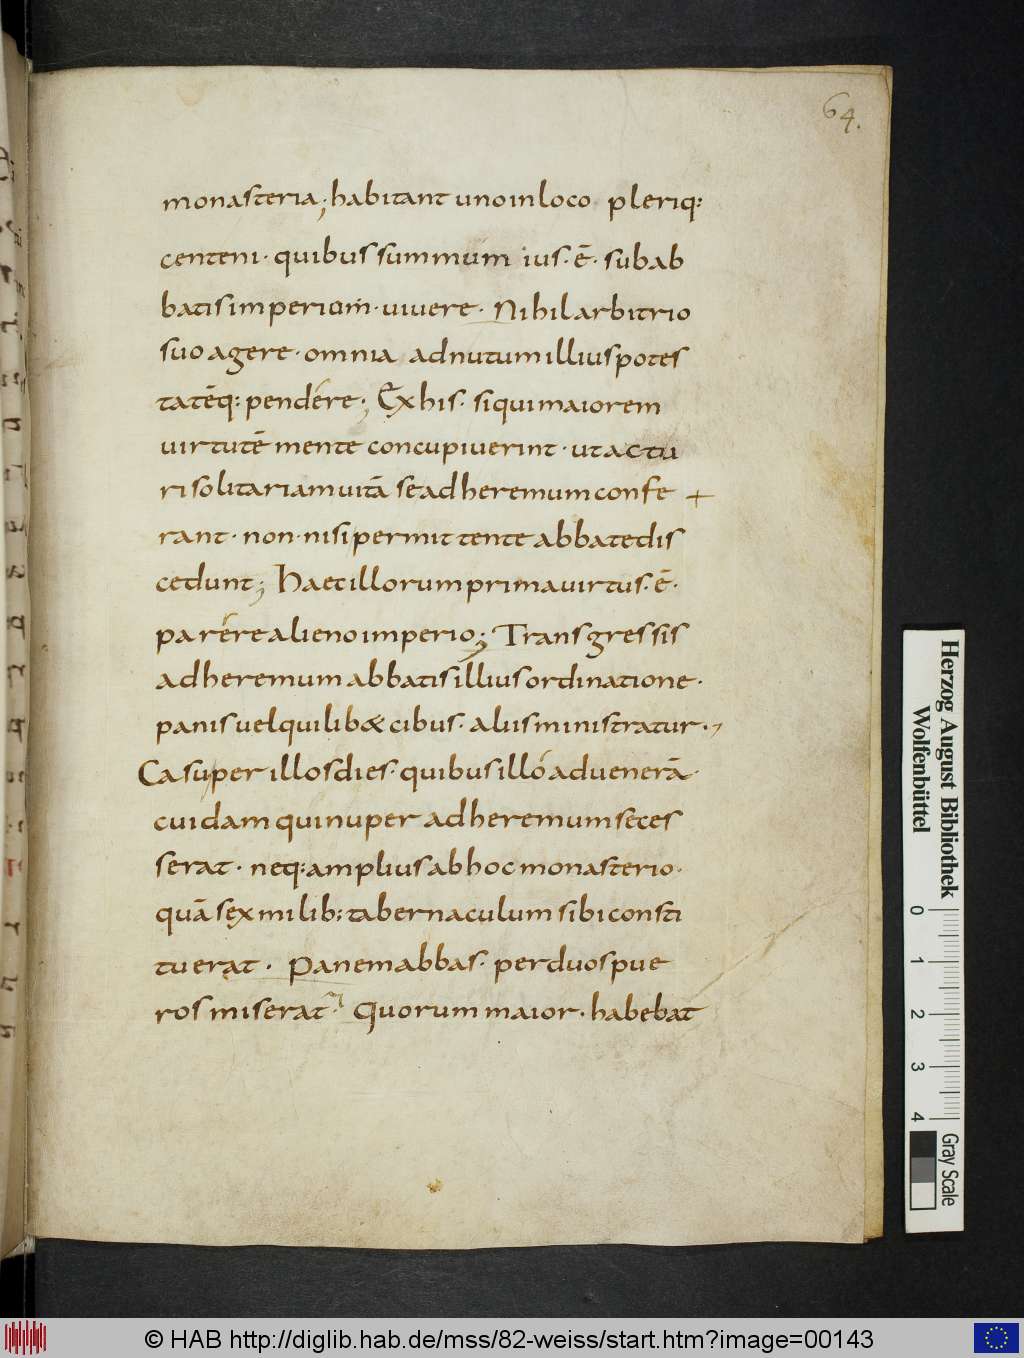 64.
monasteria; habitant uno in loco pleriq:
centeni· quibus summum ius· ē· sub ab
batis imperium· uiuere· Nihil arbitrio
suo agere· omnia ad nutum illius potes
tatēq: pendére; Ex his· siqui maiorem
uirtutē mente concupiuerint· ut actu
ri solitariam uitā se ad heremum confe +
rant· non· nisi permittente abbate dis
cedunt; Haec illorum prima uirtus· ē·
parére alieno imperio; Transgressis
ad heremum abbatis illius ordinatione·
panis uel quilib& cibus· aliis ministratur·,
Casu per illos dies· quibus illó aduenerā·
cuidam qui nuper ad heremum seces
serat· neq: amplius ab hoc monasterio·
quā sex milib: tabernaculum sibi consti
tuerat· Panem abbas· per duos pue
ros miserat· Quorum maior· habebat
Herzog August Bibliothek
Wolfenbüttel
0 1 2 3 4
Gray Scale
© HAB http://diglib.hab.de/mss/82-weiss/start.htm?image=00143